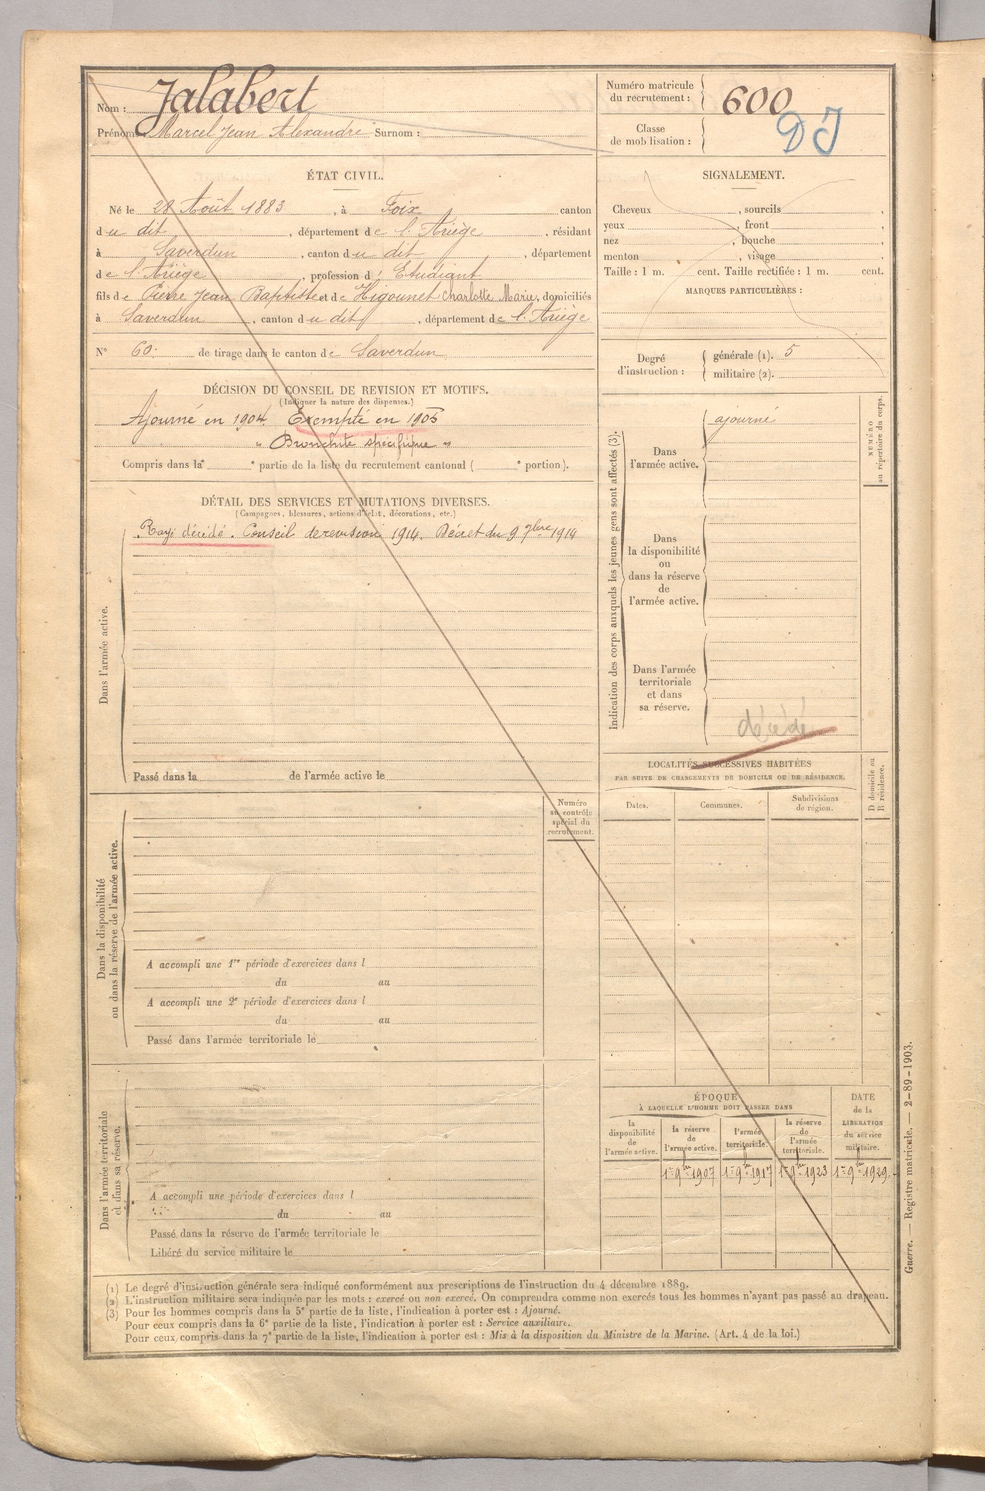 Nom : Jalabert
Prénoms : Marcel Jean Alexandre Surnom :
Numéro matricule du recrutement : 600
DJ
Classe de mobilisation :
ÉTAT CIVIL.
Né le 28 Août 1883, à Foix canton
du dit, département de l'Ariège, résidant
à Saverdun, canton du dit, département
de l'Ariège, profession d'Etudiant
fils de Pierre Jean Baptiste et de Higounet Charlotte Marie, domiciliés
à Saverdun, canton du dit, département de l'Ariège
N° 60. de tirage dans le canton de Saverdun
DÉCISION DU CONSEIL DE REVISION ET MOTIFS.
(Indiquer la nature des dispenses.)
Ajourné en 1904. Exempté en 1905
" Bronchite spécifique "
Compris dans la e partie de la liste du recrutement cantonal ( e portion).
DÉTAIL DES SERVICES ET MUTATIONS DIVERSES.
(Campagnes, blessures, actions d'éclat, décorations, etc.)
Rayé décédé. Conseil de revision 1914. Décret du 9 7bre 1914
Dans l'armée active.
Passé dans la de l'armée active le
Dans la disponibilité
ou dans la réserve de l'armée active.
Numéro
au contrôle
spécial du
recrutement.
A accompli une 1re période d'exercices dans l
du au
A accompli une 2e période d'exercices dans l
du au
Passé dans l'armée territoriale le
Dans l'armée territoriale
et dans sa réserve.
A accompli une période d'exercices dans l
du au
Passé dans la réserve de l'armée territoriale le
Libéré du service militaire le
SIGNALEMENT.
Cheveux , sourcils ,
yeux , front ,
nez , bouche ,
menton , visage ,
Taille : 1 m. cent. Taille rectifiée : 1 m. cent.
MARQUES PARTICULIÈRES :
Degré d'instruction :
générale (1). 5
militaire (2).
Indication des corps auxquels les jeunes gens sont affectés (3).
NUMÉRO
au répertoire du corps.
Dans
l'armée active.
ajourné
Dans
la disponibilité
ou
dans la réserve
de
l'armée active.
Dans l'armée
territoriale
et dans
sa réserve.
décédé
LOCALITÉS SUCCESSIVES HABITÉES
PAR SUITE DE CHANGEMENTS DE DOMICILE OU DE RÉSIDENCE.
D domicile ou
R résidence.
Dates. Communes. Subdivisions de région.
ÉPOQUE
À LAQUELLE L'HOMME DOIT PASSER DANS
DATE
de la
LIBÉRATION
du service
militaire.
la disponibilité de l'armée active.
la réserve de l'armée active.
l'armée territoriale.
la réserve de l'armée territoriale.
1er 9bre 1907 1er 9bre 1917 1er 9bre 1923 1er 9bre 1929.
(1) Le degré d'instruction générale sera indiqué conformément aux prescriptions de l'instruction du 4 décembre 1889.
(2) L'instruction militaire sera indiquée par les mots : exercé ou non exercé. On comprendra comme non exercés tous les hommes n'ayant pas passé au drapeau.
(3) Pour les hommes compris dans la 5e partie de la liste, l'indication à porter est : Ajourné.
Pour ceux compris dans la 6e partie de la liste, l'indication à porter est : Service auxiliaire.
Pour ceux compris dans la 7e partie de la liste, l'indication à porter est : Mis à la disposition du Ministre de la Marine. (Art. 4 de la loi.)
Guerre. — Registre matricule. — 2-89-1903.